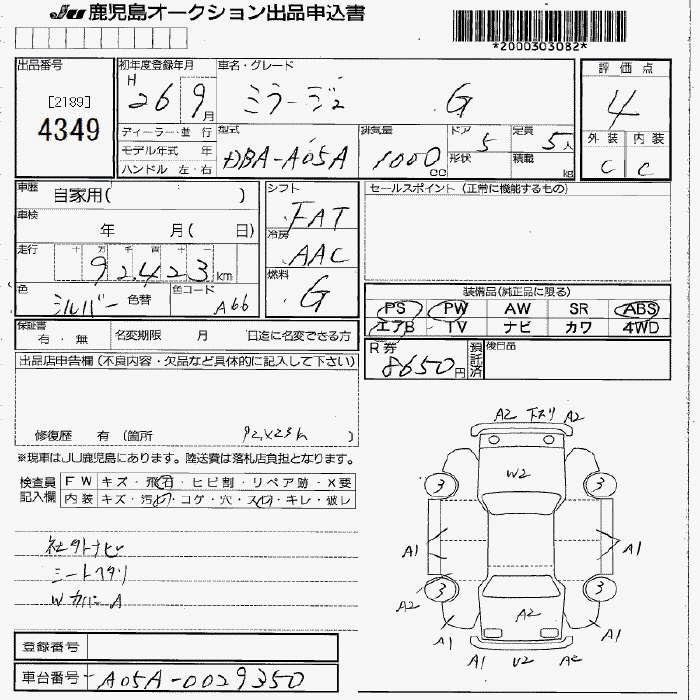 JU 鹿児島オークション出品申込書
*2000303082*
出品番号
[2189]
4349
初年度登録年月
H 26 9月
車名・グレード
ミラージュ G
評価点
4
外装 内装
C C
ディーラー・並行
モデル年式 年
ハンドル 左・右
型式
DBA-A05A
排気量
1000cc
ドア 5
形状
定員 5人
積載 kg
車歴 自家用( )
車検 年 月( 日)
走行 十 万 千 百 十 一
92,423km
色 シルバー 色替
色コード A66
シフト
FAT
冷房
AAC
燃料
G
セールスポイント (正常に機能するもの)
装備品(純正品に限る)
PS PW AW SR ABS
エアB TV ナビ カワ 4WD
保証書 有・無
名変期限 月 日迄に名変できる方
R券 8650円
預託済
後日品
出品店申告欄 (不良内容・欠品など具体的に記入して下さい)
修復歴 有 (箇所 )
※現車はJU鹿児島にあります。陸送費は落札店負担となります。
検査員記入欄
FW キズ・飛石・ヒビ割・リペア跡・X要
内装 キズ・汚れ・コゲ・穴・スレ・キレ・破レ
社外ナビ
シートヘタリ
Wカバー A
A2 下スリ A2
W2
3 3
A1 A1
3 3
A2
A2
A1 A1
A1 U2 A2
登録番号
車台番号 A05A-0029350